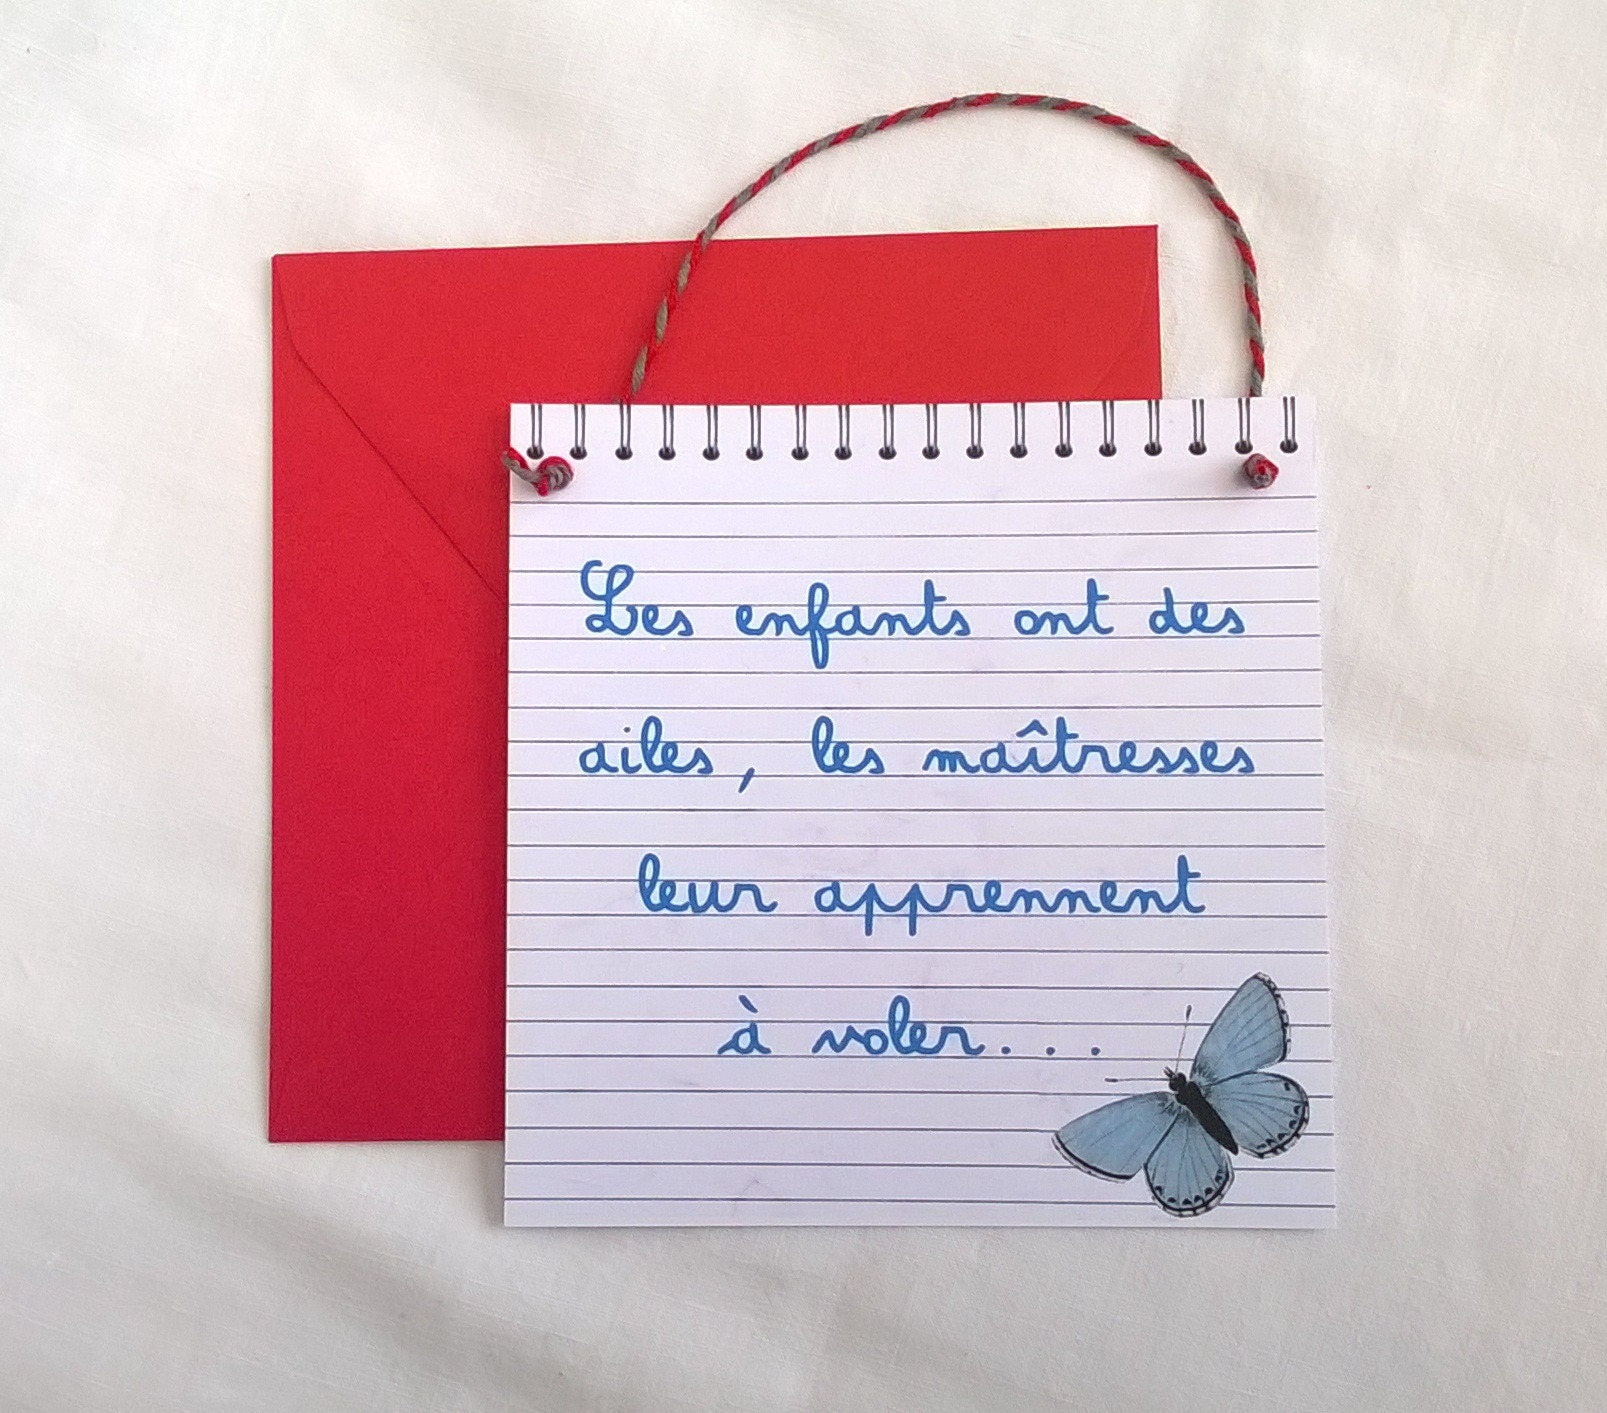 Les enfants ont des
ailes, les maîtresses
leur apprennent
à voler...